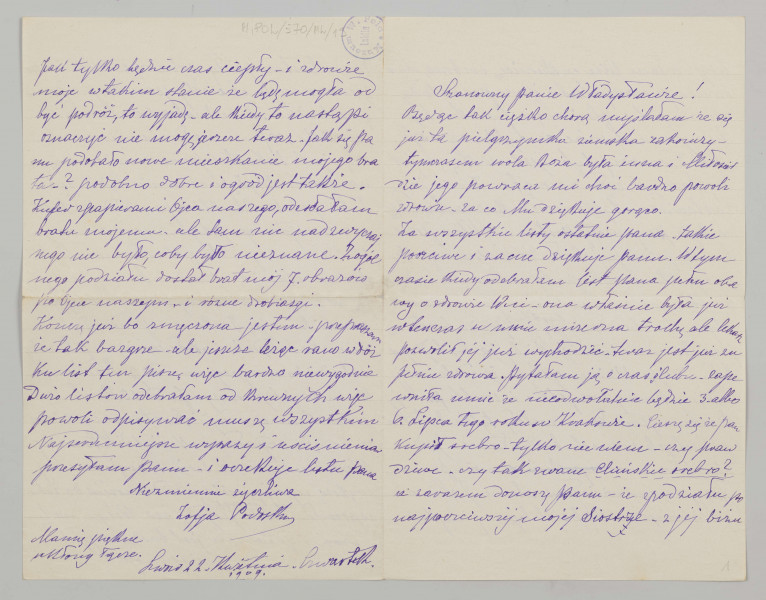 Szanowny panie Władysławie!
Będąc tak ciężko chorą myślałam że się
już ta pielgrzymka ziemska zakończy -
tymczasem wola Boża była inna i Miłosier
dzie jego powraca mi choć bardzo powoli
zdrowie - za co Mu dziękuję gorąco.
Za wszystkie listy ostatnie pana - takie
poczciwe i zacne dziękuję panu. W tym
czasie kiedy odebrałam list pana pełen oba
wy o zdrowie Wici - ona właśnie była już
wtenczas u mnie mizerna trochę ale lekarz
pozwolił jej już wychodzić - teraz jest już zu
pełnie zdrowa. Pytałam ją o czas ślubu - zape
wniła mnie że nieodwołalnie będzie 3. albo
6. Lipca tego roku w Krakowie. Cieszę się że pan
kupił srebro - tylko nie wiem - czy praw
dziwe - czy tak zwane Chińskie srebro?
zarazem donoszę panu - że z podziału po
najpoczciwszej mojej Siostrze - z jej biżu
1
M.POL/570/
Jak tylko będzie czas ciepły - i zdrowie
moje w takim stanie że będę mogła od
być podróż, to wyjadę - ale kiedy to nastąpi
oznaczyć nie mogę jeszcze teraz. Jak się pa
nu podobało nowe mieszkanie mojego bra
ta -? podobno dobre i ogród jest także.
Kufer z papierami Ojca naszego, odesłałam
bratu mojemu - ale tam nic nadzwyczaj
nego nie było, coby było nieznane. Z ogól
nego podziału dostał brat mój 7. obrazów
po Ojcu naszym - i różne drobiazgi.
Kończę już bo zmęczona jestem - przepraszam
że tak bazgrzę - ale jeszcze leżąc rano w łóż
ku list ten piszę więc bardzo niewygodnie
Dużo listów odebrałam od krewnych więc
powoli odpisywać muszę wszystkim
Najserdeczniejsze wyrazy i uściśnienia
przesyłam panu - i oczekuję listu pana
Niezmiennie życzliwa
Zofja
Mamię piękne
ukłony łączę.
Lwów 22. Kwietnia. Czwartek.
1909.